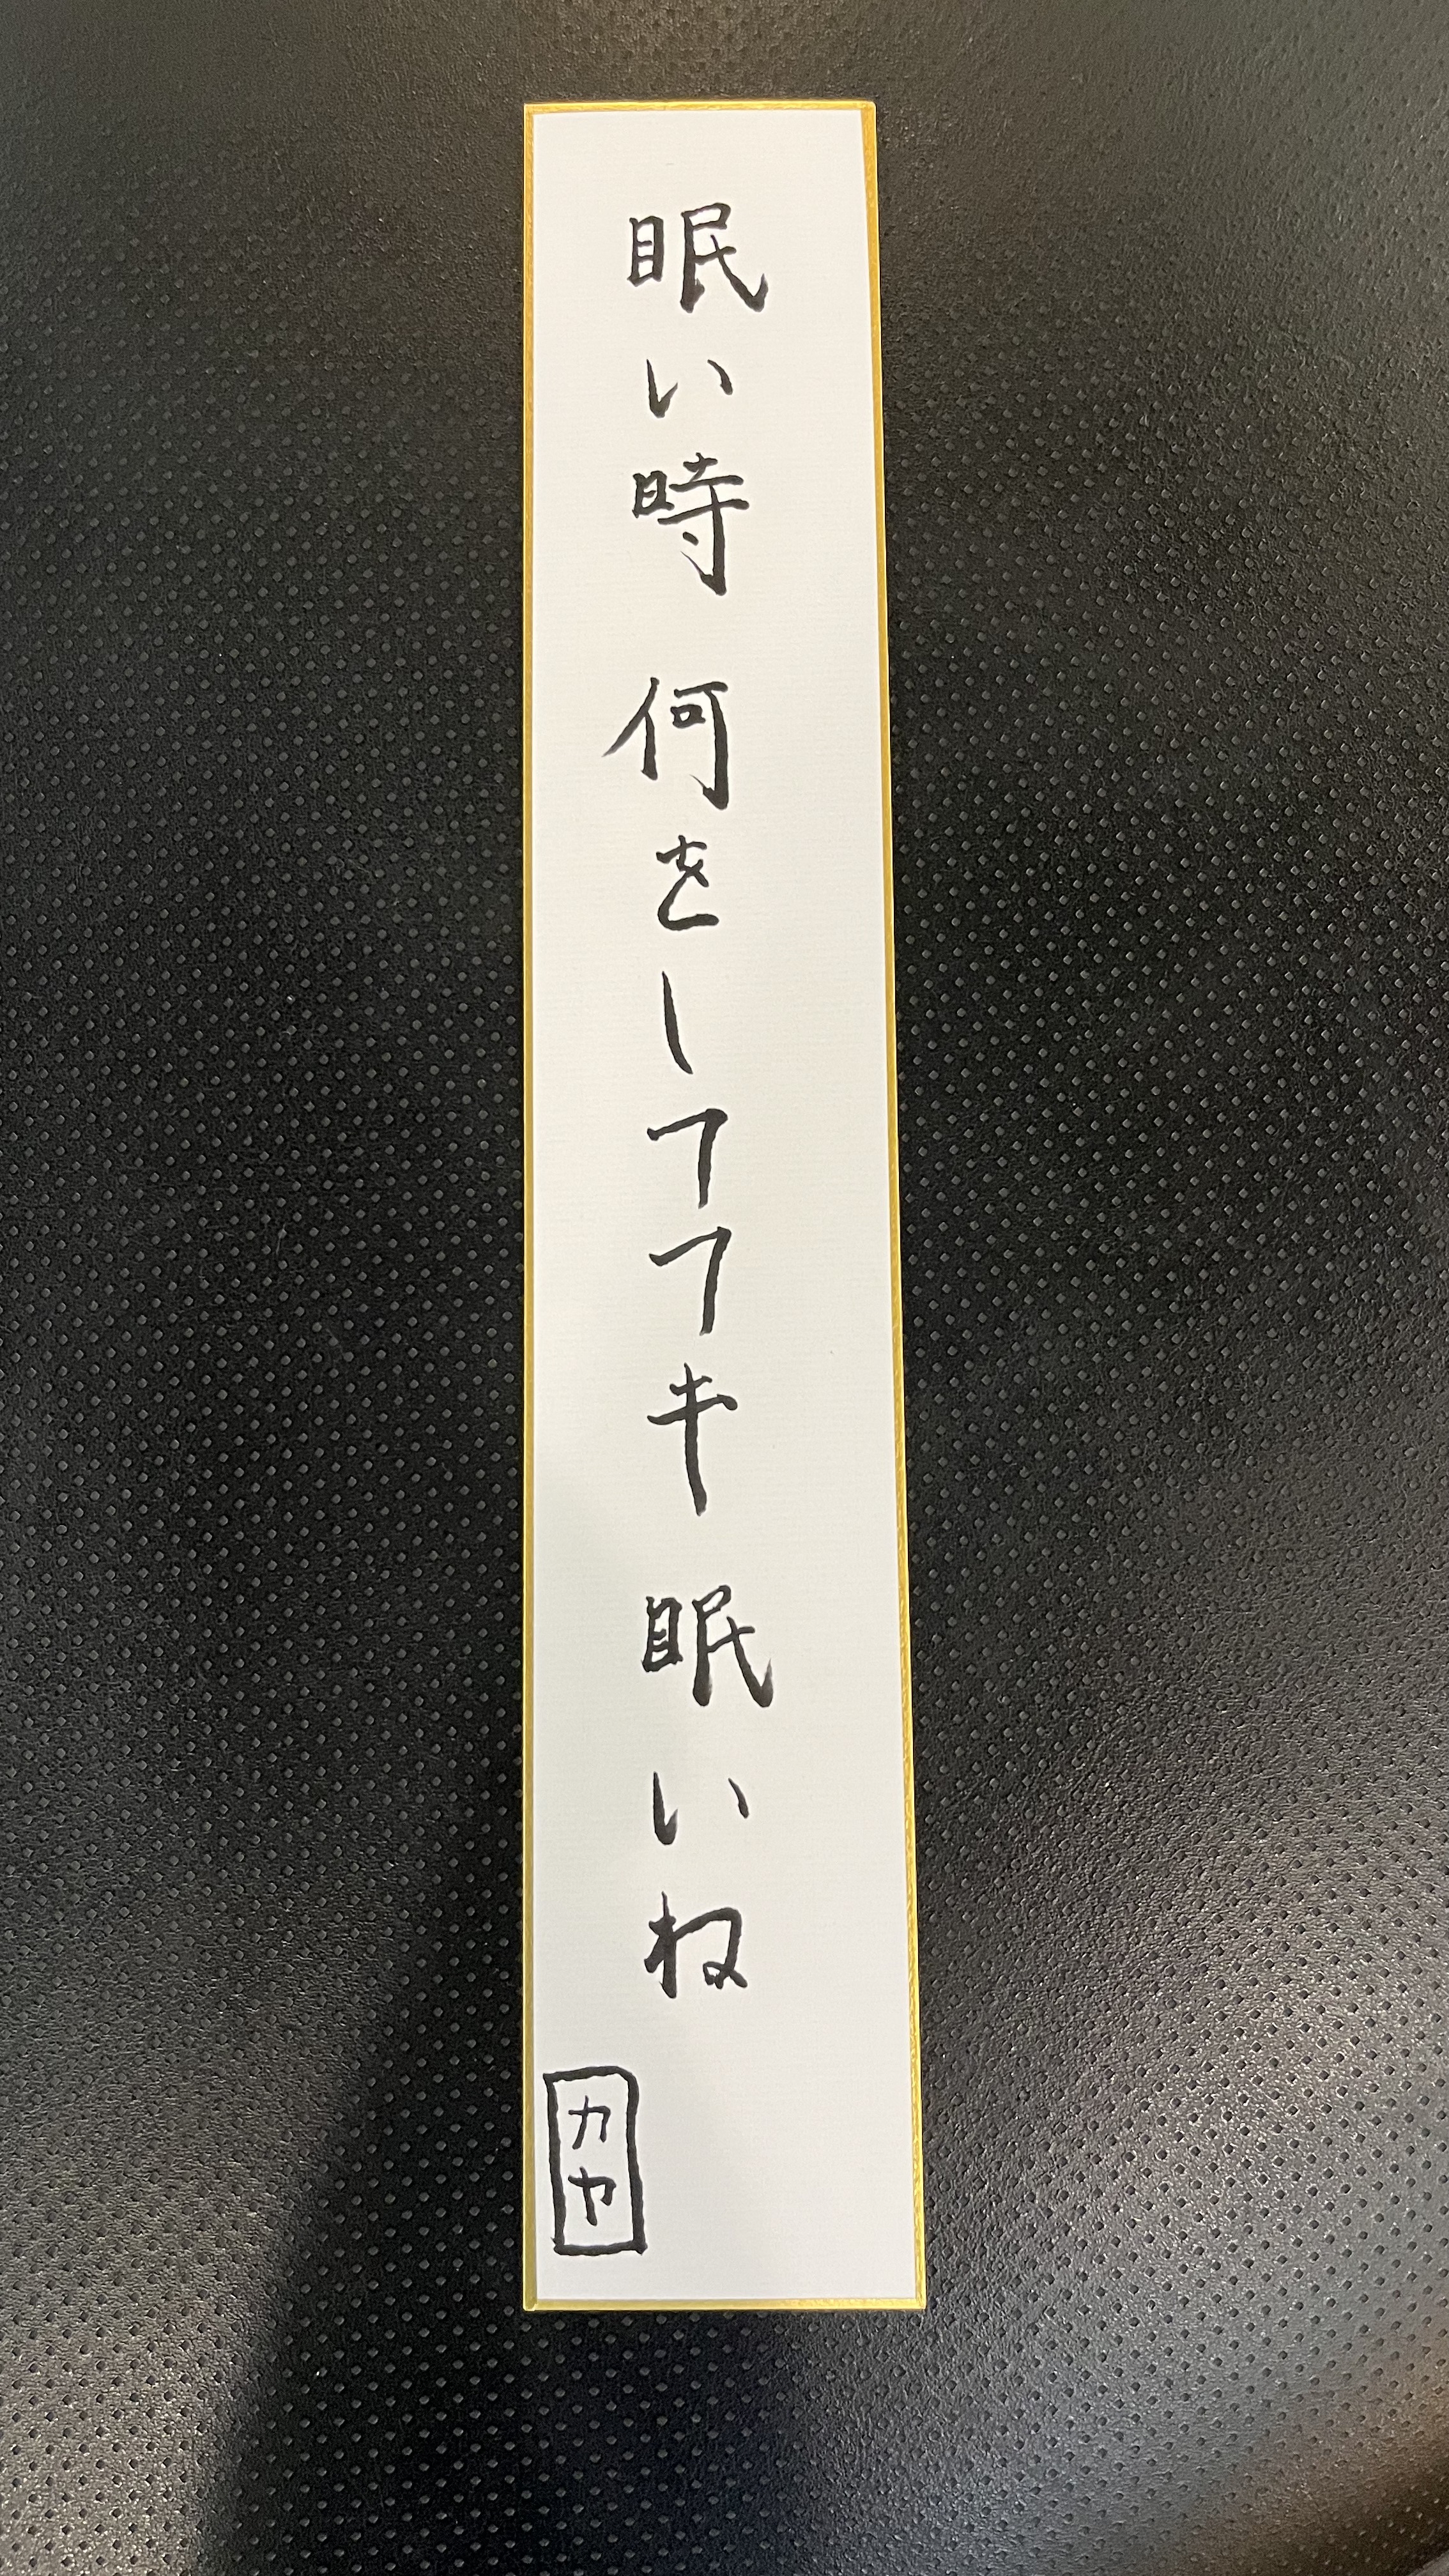 眠い時 何をしてても 眠いね
カヤ